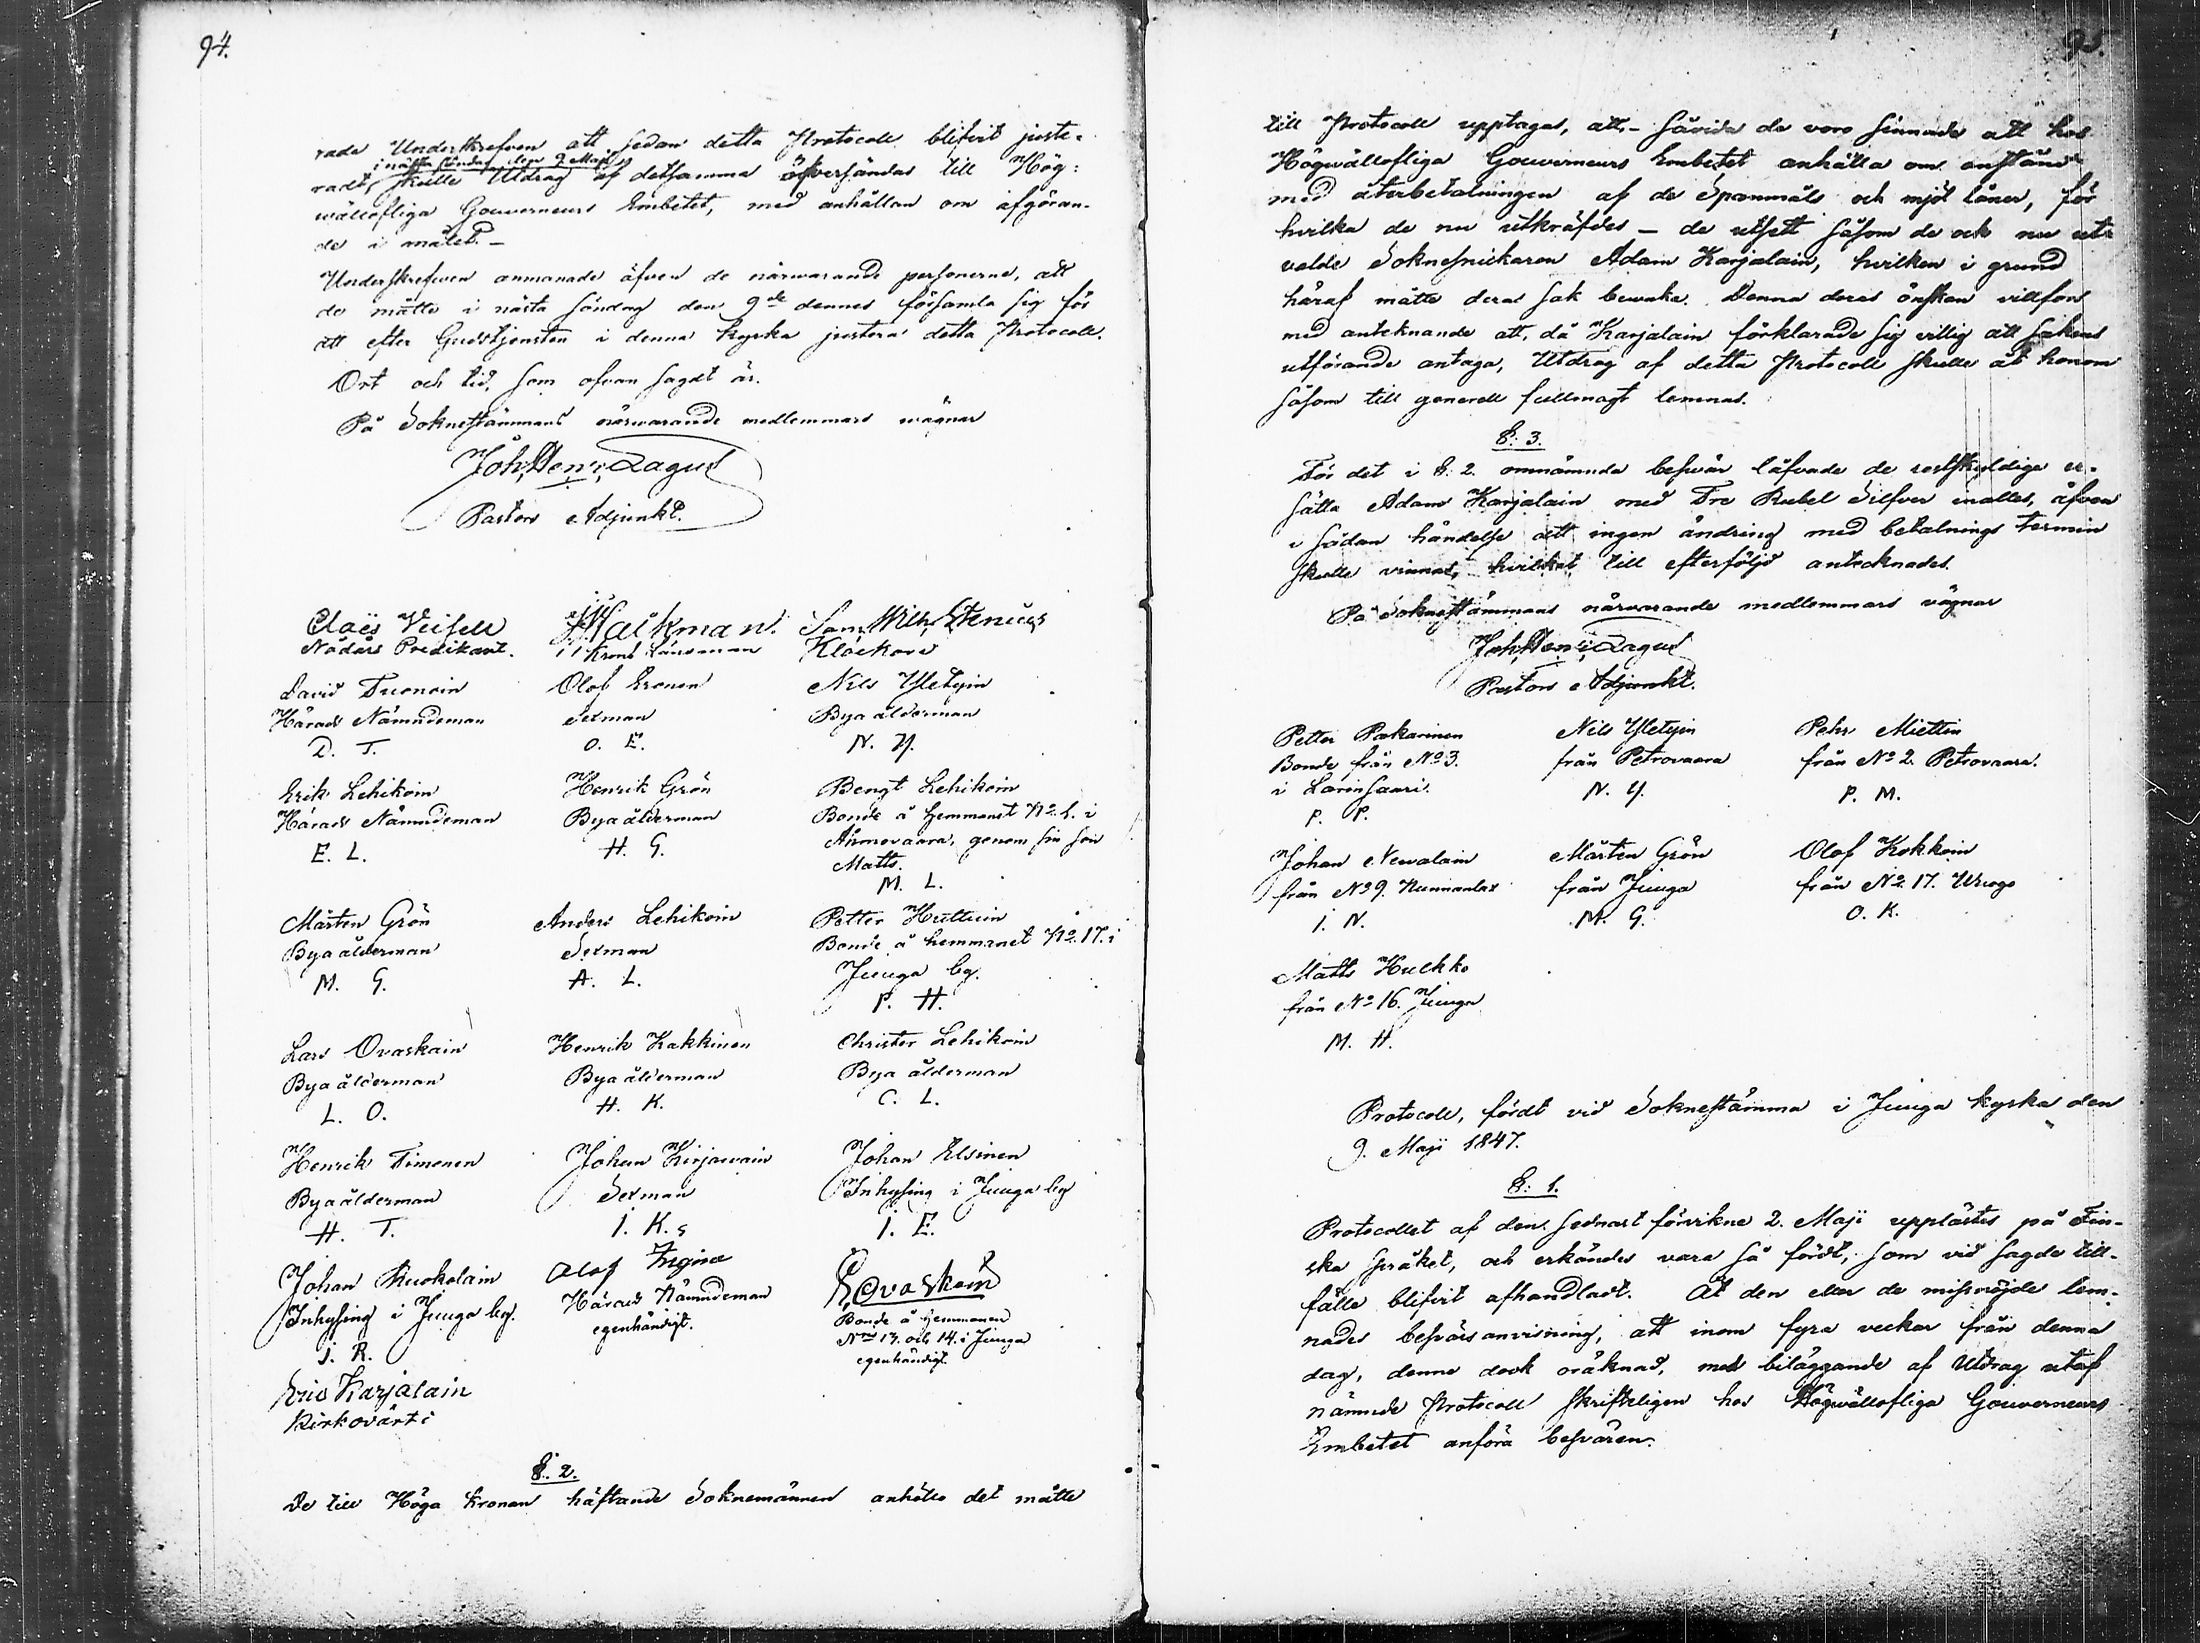 94.
rade Underskrefven att sedan detta Protocoll blifvit juste-
i nästa söndag den 9 Maji
radt, skulle Utdrag af detsamma öfversändas till Hög-
wällofliga Gouverneurs Embetet, med anhållan om afgöran-
de i målet. –
Underskrefven anmanade äfven de närwarande personerne, att
de måtte i nästa söndag den 9de dennes församla sig för
att efter Gudstjensten i denna kyrka justera detta Protocoll.
Ort och tid, som ofvan sagdt är.
På Soknestämmans närwarande medlemmars wägnar
Joh. Henr. Zagus
Pastors Adjunkt.
Claës Veisell
Nådårs Predikant.
Walkman.
Krono Länsman
Sam. Wilh. Stenius
Klockare
David Tuonoin
Härads Nämndeman
D. T.
Olof Eronen
Sexman
O. E.
Nils Yletyin
Bya ålderman
N. Y.
Erik Lehikoin
Härads Nämndeman
E. L.
Henrik Grön
Bya ålderman
H. G.
Bengt Lehikoin
Bonde å hemmanet No 1. i
Ahmovaara, genom sin son
Matts.
M. L.
Mårten Grön
Bya ålderman
M. G.
Anders Lehikoin
Sexman
A. L.
Petter Huttuin
Bonde å hemmanet No 17. i
Juuga by.
P. H.
Lars Ovaskain
Bya ålderman
L. O.
Henrik Kakkinen
Bya ålderman
H. K.
Christer Lehikoin
Bya ålderman
C. L.
Henrik Timonen
Bya ålderman
H. T.
Johan Kirjawain
Sexman
I. K.
Johan Elsinen
Inhysing i Juuga by
I. E.
Johan Ruokolain
Inhysing i Juuga by.
J. R.
Olof
Härads Nämndeman
egenhändigt.
Ovaskain
Bonde å hemmanen
No 13. och 14. i Juuga
egenhändigt.
Eric Karjalain
Kirkovärti
§. 2.
De till Höga Kronan häftande Soknemännen anhöllo det måtte
95.
till Protocoll upptagas, att – såvida de voro sinnade att hos
Högwällofliga Gouverneurs Embetet anhålla om anstånd
med återbetalningen af de Spanmåls och mjöl låner, för
hvilka de nu utkräfdes – de utsett såsom de ock nu ut-
valde Soknesnickaren Adam Karjalain, hvilken i grund
häraf måtte deras sak bewaka. Denna deras önskan villfors
med anteknande att, då Karjalain förklarade sig villig att sakens
utförande antaga, Utdrag af detta Protocoll skulle åt honom
såsom till generell fullmagt lemnas.
§. 3.
För det i §. 2. omnämnda besvär låfvade de restskyldige er-
sätta Adam Karjalain med Tre Rubel Silfver inalles, äfven
i sådan händelse att ingen ändring med betalnings termin
skulle vinnas, hvilket till efterföljd antecknades.
På Soknestämmans närvarande medlemmars vägnar
Joh. Henr. Zagus
Pastors Adjunkt.
Petter Pakarinen
Bonde från No 3.
i Larinsaari.
P. P.
Nils Yletyin
från Petrovaara
N. Y.
Pehr Miettin
från No 2. Petrovaara.
P. M.
Johan Nevalain
från No 9. Nunnanlax
I. N.
Mårten Grön
från Juuga
M. G.
Olof Kokkoin
från No 17.
O. K.
Matts Hulkko
från No 16. Juuga
M. H.
Protocoll, fördt vid Soknestämma i Juuga kyrka den
9. Maji 1847.
§. 1.
Protocollet af den sednast förvikne 2. Maji upplästes på Fin-
ska språket, och erkändes vara så fördt, som vid sagde till-
fälle blifvit afhandladt. Åt den eller de missnöjde lem-
nades besvärsanvisning, att inom fyra veckor från denna
dag, denne dock oräknad, med biläggande af Utdrag utaf
nämnde Protocoll skrifteligen hos Högwällofliga Gouverneurs
Embetet anföra besvären.